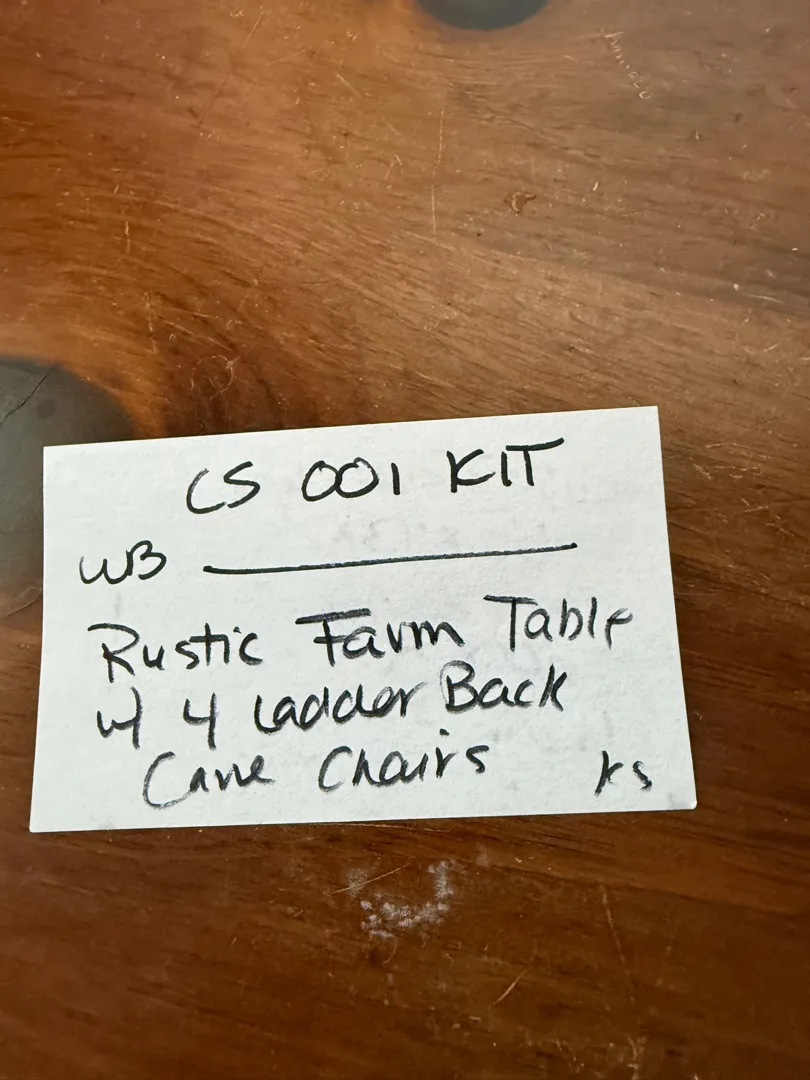 CS 001 KIT
WB ____________
Rustic Farm Table
w/ 4 Ladder Back
Cane Chairs KS